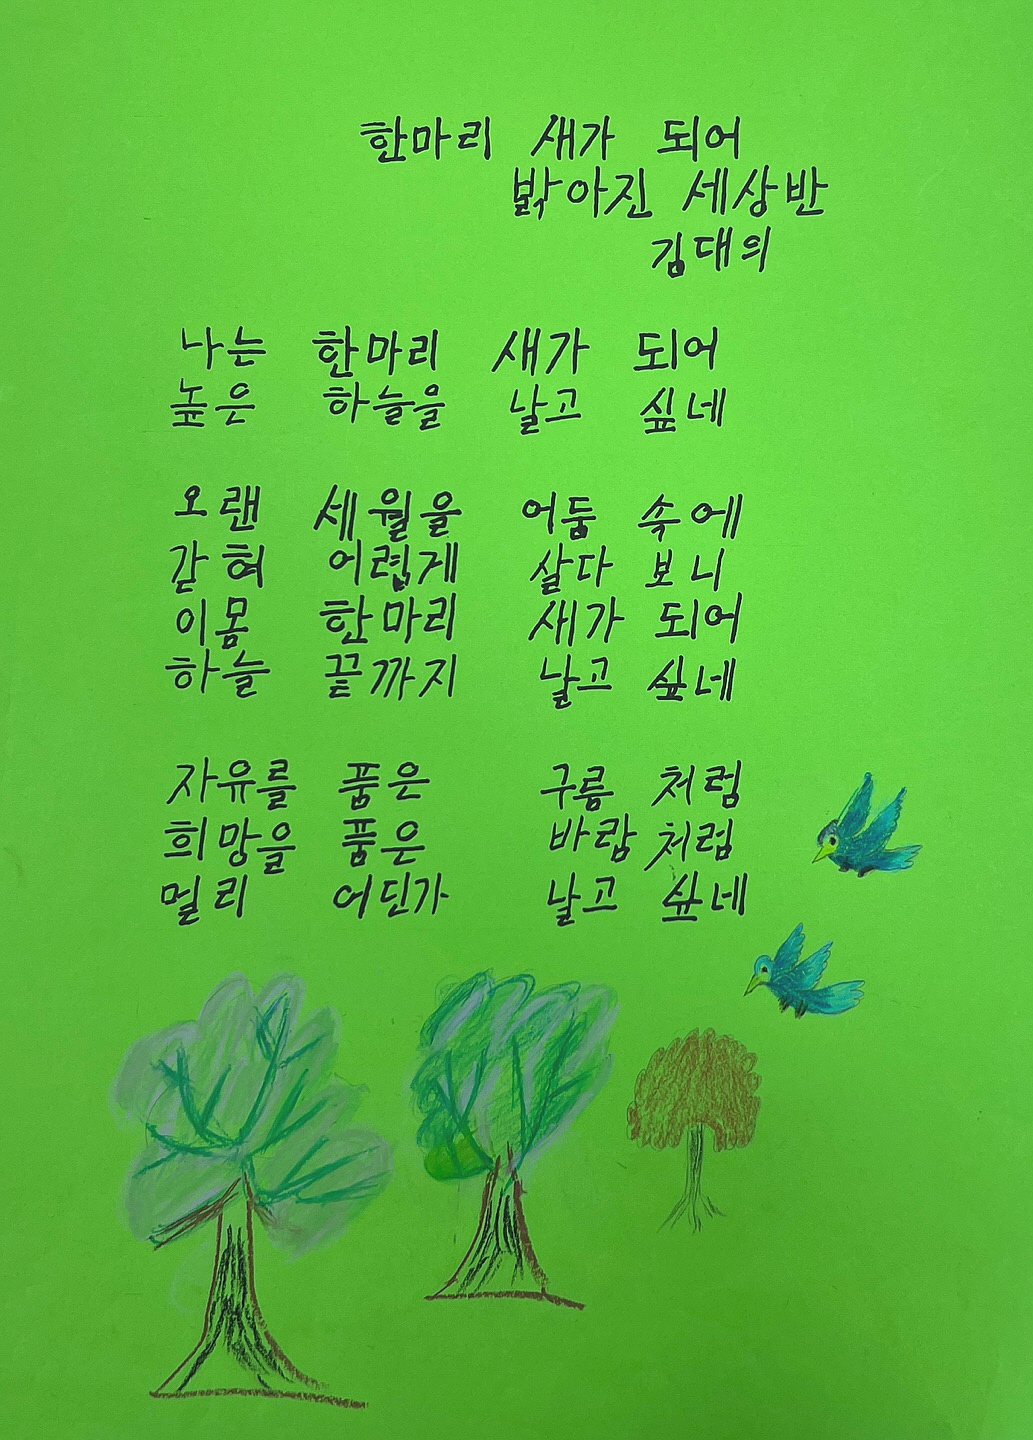 한마리 새가 되어
밝아진 세상반
김대의
나는 한마리 새가 되어
높은 하늘을 날고 싶네
오랜 세월을 어둠 속에
갇혀 어렵게 살다 보니
이몸 한마리 새가 되어
하늘 끝까지 날고 싶네
자유를 품은 구름 처럼
희망을 품은 바람 처럼
멀리 어딘가 날고 싶네